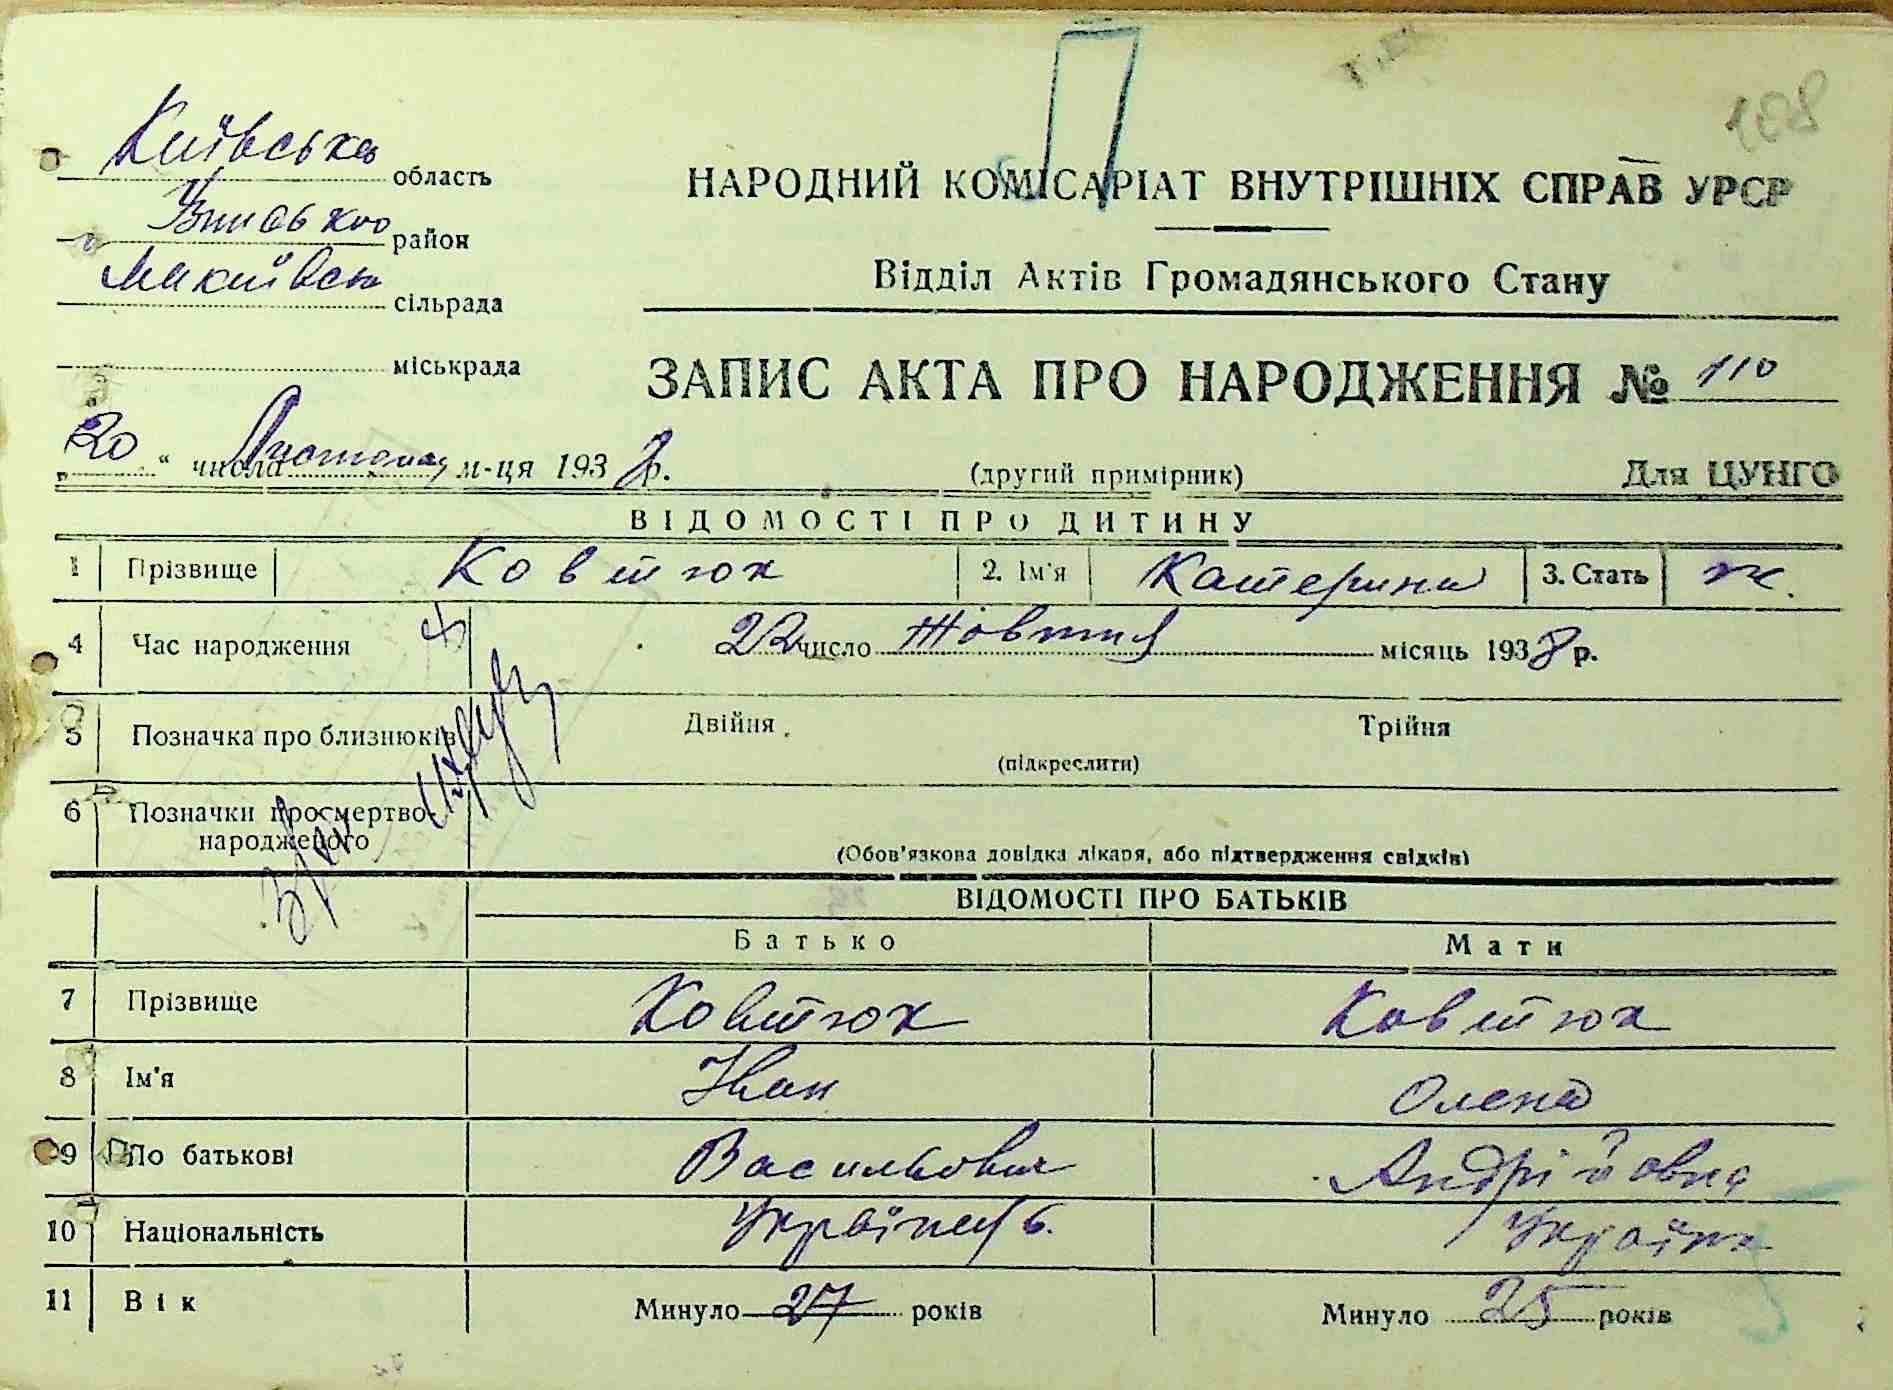 108
Київська область
район
сільрада
міськрада
НАРОДНИЙ КОМІСАРІАТ ВНУТРІШНІХ СПРАВ УРСР
Відділ Актів Громадянського Стану
ЗАПИС АКТА ПРО НАРОДЖЕННЯ № 110
„20“ числа Листопад м-ця 1938 р.
(другий примірник)
Для ЦУНГО
ВІДОМОСТІ ПРО ДИТИНУ
1 Прізвище Ковтюк 2. Ім'я Катерина 3. Стать ж.
4 Час народження 22 число Жовтня місяць 1938 р.
5 Позначка про близнюків Двійня Трійня
(підкреслити)
6 Позначки про мертво-
народженого
(Обов'язкова довідка лікаря, або підтвердження свідків)
ВІДОМОСТІ ПРО БАТЬКІВ
Батько Мати
7 Прізвище Ковтюк Ковтюк
8 Ім'я Іван Олена
9 По батькові Васильович Андрійовна
10 Національність Українець Українка
11 Вік Минуло 27 років Минуло 25 років